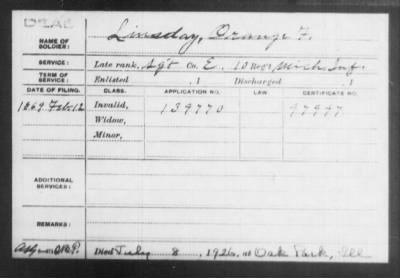 NAME OF SOLDIER: Linsday, Orange F.
SERVICE: Late rank, Sgt Co. E, 10 Reg't Mich. Inf.
TERM OF SERVICE: Enlisted , 1 Discharged , 1
DATE OF FILING. CLASS. APPLICATION NO. LAW. CERTIFICATE NO.
1869 Feb. 12 Invalid, 139770 97947
Widow,
Minor,
ADDITIONAL SERVICES:
REMARKS:
Died July 8, 1926, at Oak Park, Ill